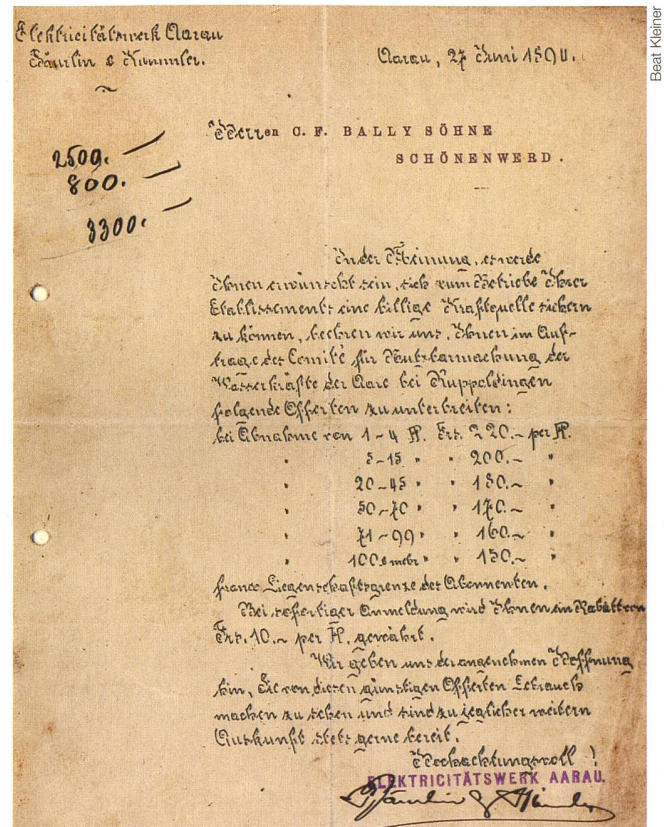 Elektricitätswerk Aarau
Täuilin & Kummler.
Aarau, 27 Juni 1890.
Herren C. F. BALLY SÖHNE
SCHÖNENWERD.
2500.
800.
3300.
In der Meinung, es werde
Ihnen erwünscht sein, sich zum Betriebe Ihrer
Etablissements eine billige Kraftquelle sichern
zu können, beehren wir uns, Ihnen im Auf-
trage des Comité für Nutzbarmachung der
Wasserkräfte der Aare bei Ruppoldingen
folgende Offerten zu unterbreiten:
bei Abnahme von 1-4 HP. Frs. 220.- per HP.
" 5-15 " " 200.- "
" 20-45 " " 180.- "
" 50-70 " " 170.- "
" 71-99 " " 160.- "
" 100 & mehr " " 150.- "
franco Liegenschaftsgrenze des Abonnenten.
Bei sofortiger Anmeldung wird Ihnen ein Rabatt von
Frs. 10.- per HP. gewährt.
Wir geben uns der angenehmen Hoffnung
hin, Sie von diesen günstigen Offerten Gebrauch
machen zu sehen und sind zu jeglicher weitern
Auskunft stets gerne bereit.
Hochachtungsvoll!
ELEKTRICITÄTSWERK AARAU.
Beat Kleiner